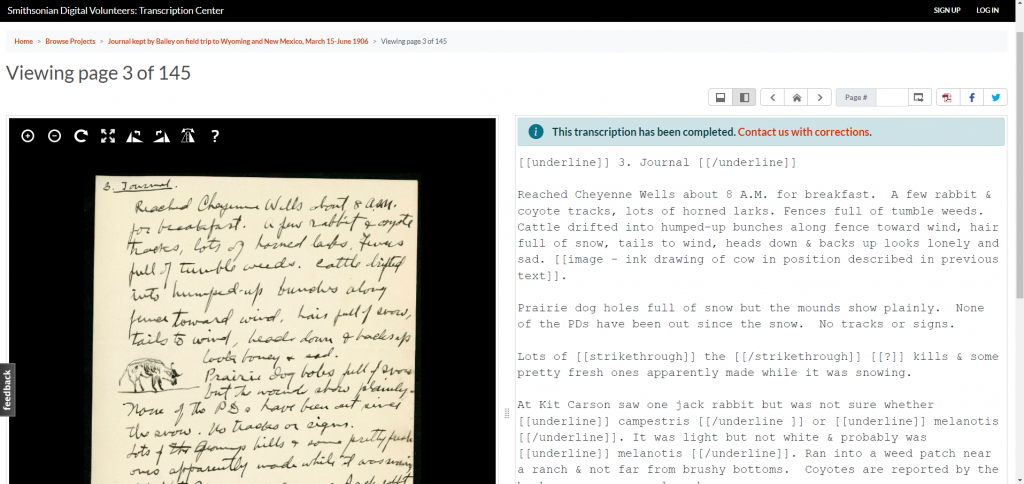 Smithsonian Digital Volunteers: Transcription Center
SIGN UP LOG IN
Home > Browse Projects > Journal kept by Bailey on field trip to Wyoming and New Mexico, March 15-June 1906 > Viewing page 3 of 145
Viewing page 3 of 145
Page #
feedback
3. Journal.
Reached Cheyenne Wells about 8 A.M.
for breakfast. A few rabbit & coyote
tracks, lots of horned larks. Fences
full of tumble weeds. Cattle drifted
into humped-up bunches along
fence toward wind, hair full of snow,
tails to wind, heads down & backs up
looks & sad.
Prairie dog holes full of snow
but the mounds show plainly.
None of the PDs have been out since
the snow. No tracks or signs.
Lots of the kills & some pretty fresh
ones apparently made while it was snowing
This transcription has been completed. Contact us with corrections.
[[underline]] 3. Journal [[/underline]]
Reached Cheyenne Wells about 8 A.M. for breakfast. A few rabbit &
coyote tracks, lots of horned larks. Fences full of tumble weeds.
Cattle drifted into humped-up bunches along fence toward wind, hair
full of snow, tails to wind, heads down & backs up looks lonely and
sad. [[image - ink drawing of cow in position described in previous
text]].
Prairie dog holes full of snow but the mounds show plainly. None
of the PDs have been out since the snow. No tracks or signs.
Lots of [[strikethrough]] the [[/strikethrough]] [[?]] kills & some
pretty fresh ones apparently made while it was snowing.
At Kit Carson saw one jack rabbit but was not sure whether
[[underline]] campestris [[/underline ]] or [[underline]] melanotis
[[/underline]]. It was light but not white & probably was
[[underline]] melanotis [[/underline]]. Ran into a weed patch near
a ranch & not far from brushy bottoms. Coyotes are reported by the